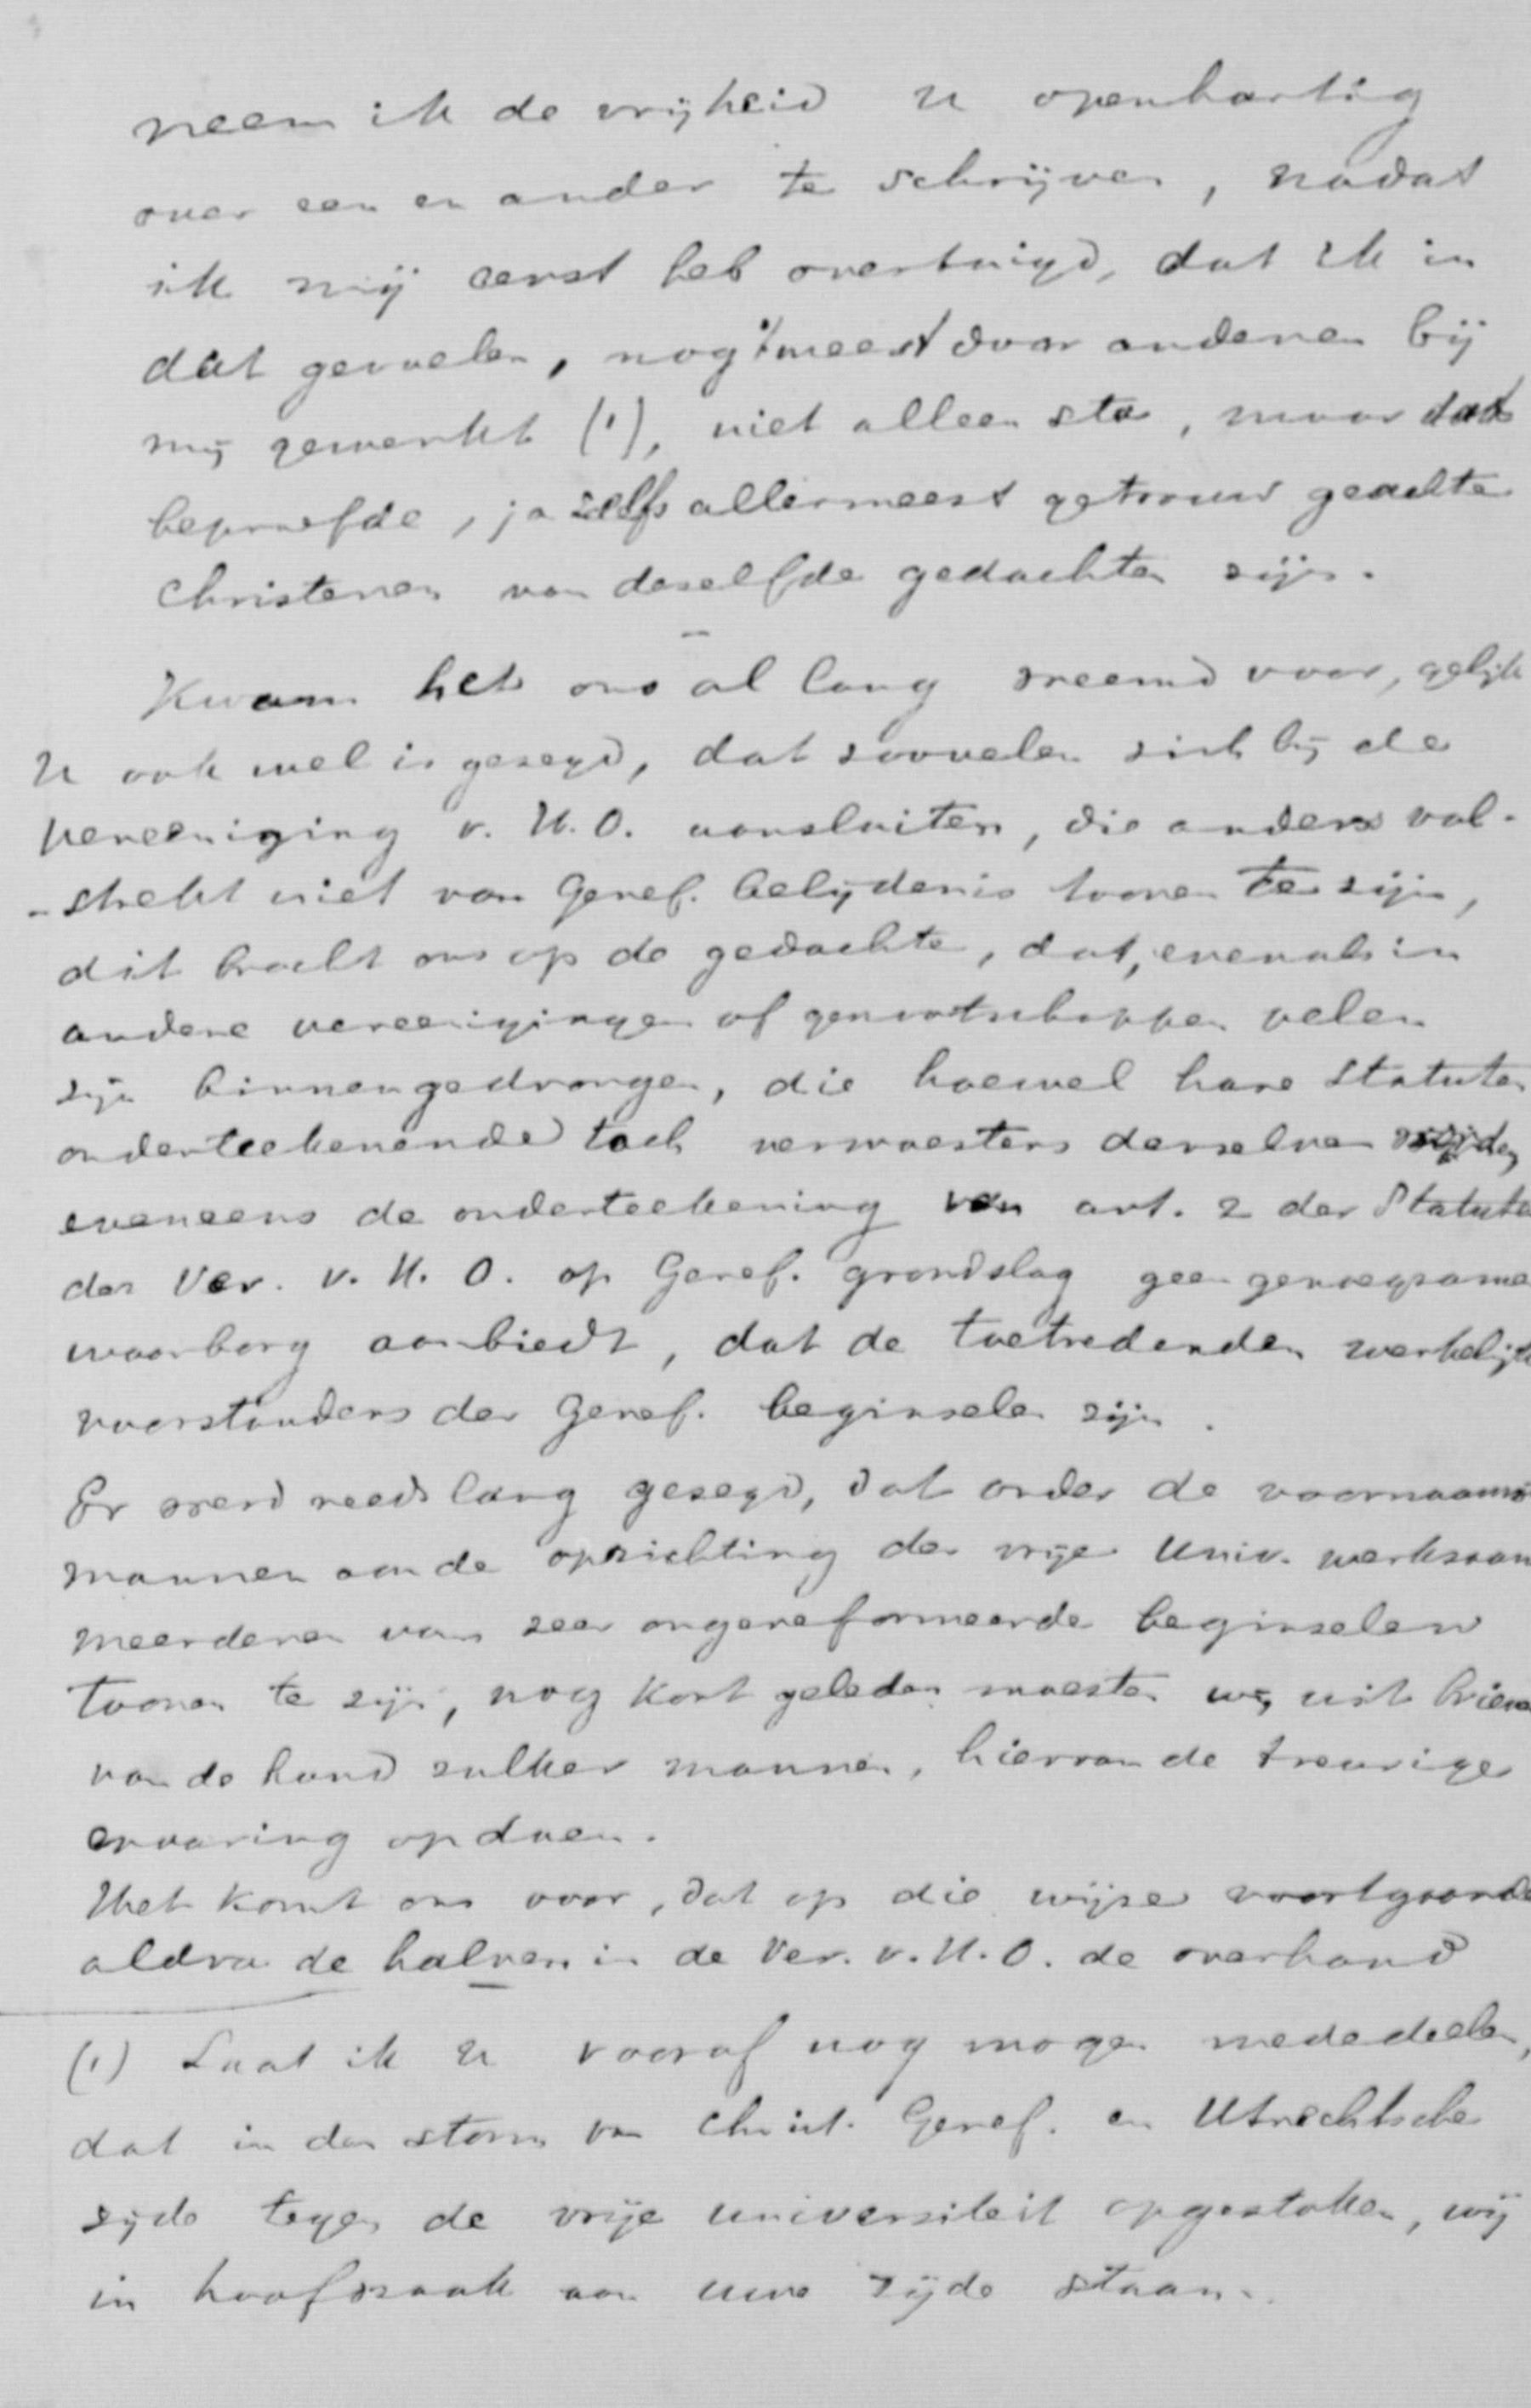 neem ik de vrijheid U openhartig
over een en ander te schrijven, nadat
ik mij eerst heb overtuigd, dat ik in
dat gevoelen, nog 't meest door anderen bij
mij gewerkt (1), niet alleen sta, maar dat
beproefde, ja zelfs allermeest getrouw geachte
Christenen van dezelfde gedachten zijn.
Kwam het ons al lang vreemd voor, gelijk
U ook wel is gezegd, dat zoovelen zich bij de
Vereeniging v. H. O. aansluiten, die anders vol-
-strekt niet van Geref. belijdenis toonen te zijn,
dit bracht ons op de gedachte, dat, evenals in
andere vereenigingen of genootschappen velen
zijn binnengedrongen, die hoewel hare Statuten
onderteekenende toch verwoesters derzelven zijn,
eveneens de onderteekening van art. 2 der Statuten
der Ver. v. H. O. op Geref. grondslag geen genoegzame
waarborg aanbiedt, dat de toetredenden werkelijk
voorstanders der Geref. beginselen zijn.
Er werd reeds lang gezegd, dat onder de voornaamste
mannen aan de oprichting der vrije Univ. werkzaam
meerderen van zeer ongereformeerde beginselen
toonen te zijn, nog kort geleden moesten wij uit brieven
van de hand zulker mannen, hiervan de treurige
ervaring opdoen.
Het komt ons voor, dat op die wijze voortgaande
aldra de halven in de Ver. v. H. O. de overhand
(1) Laat ik U vooraf nog mogen mededeelen,
dat in den storm van Christ. Geref. en Utrechtsche
zijde tegen de vrije universiteit opgestoken, wij
in hoofdzaak aan uwe zijde staan.